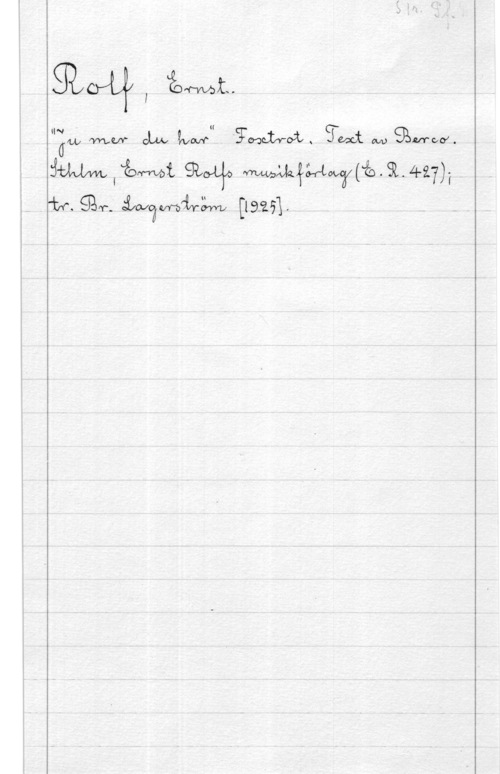 Rolf, Ernst.
"Ju mer du har" Foxtrot. Text av Berco.
Sthlm, Ernst Rolfs musikförlag (E. R. 427);
tr. Br. Lagerström [1925].